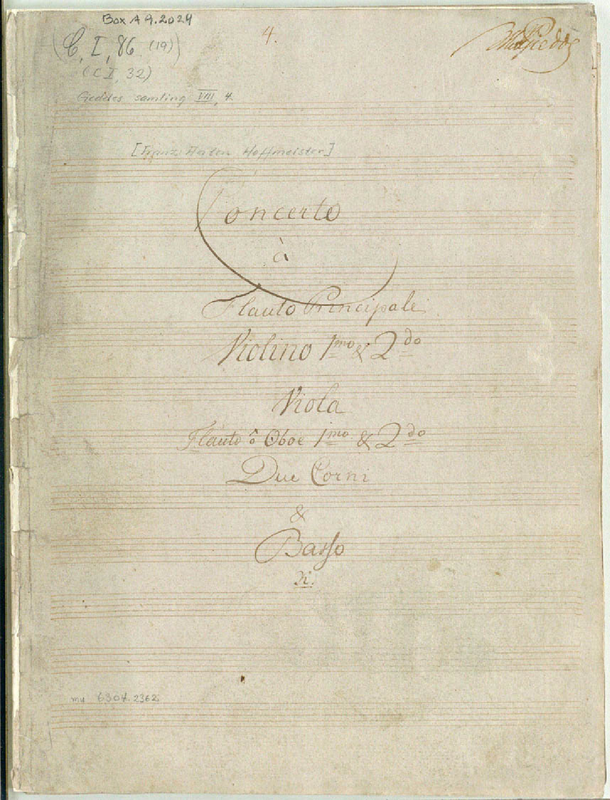 Box A A.2024
4.
(C, I, 86 (19))
(C I, 32)
Gieddes samling VIII, 4.
[Franz Anton Hoffmeister]
Concerto
à
Flauto Principale
Violino 1mo & 2do
Viola
Flauto ô Oboe 1mo & 2do
Due Corni
&
Basso
Di.
mu 6304.2362